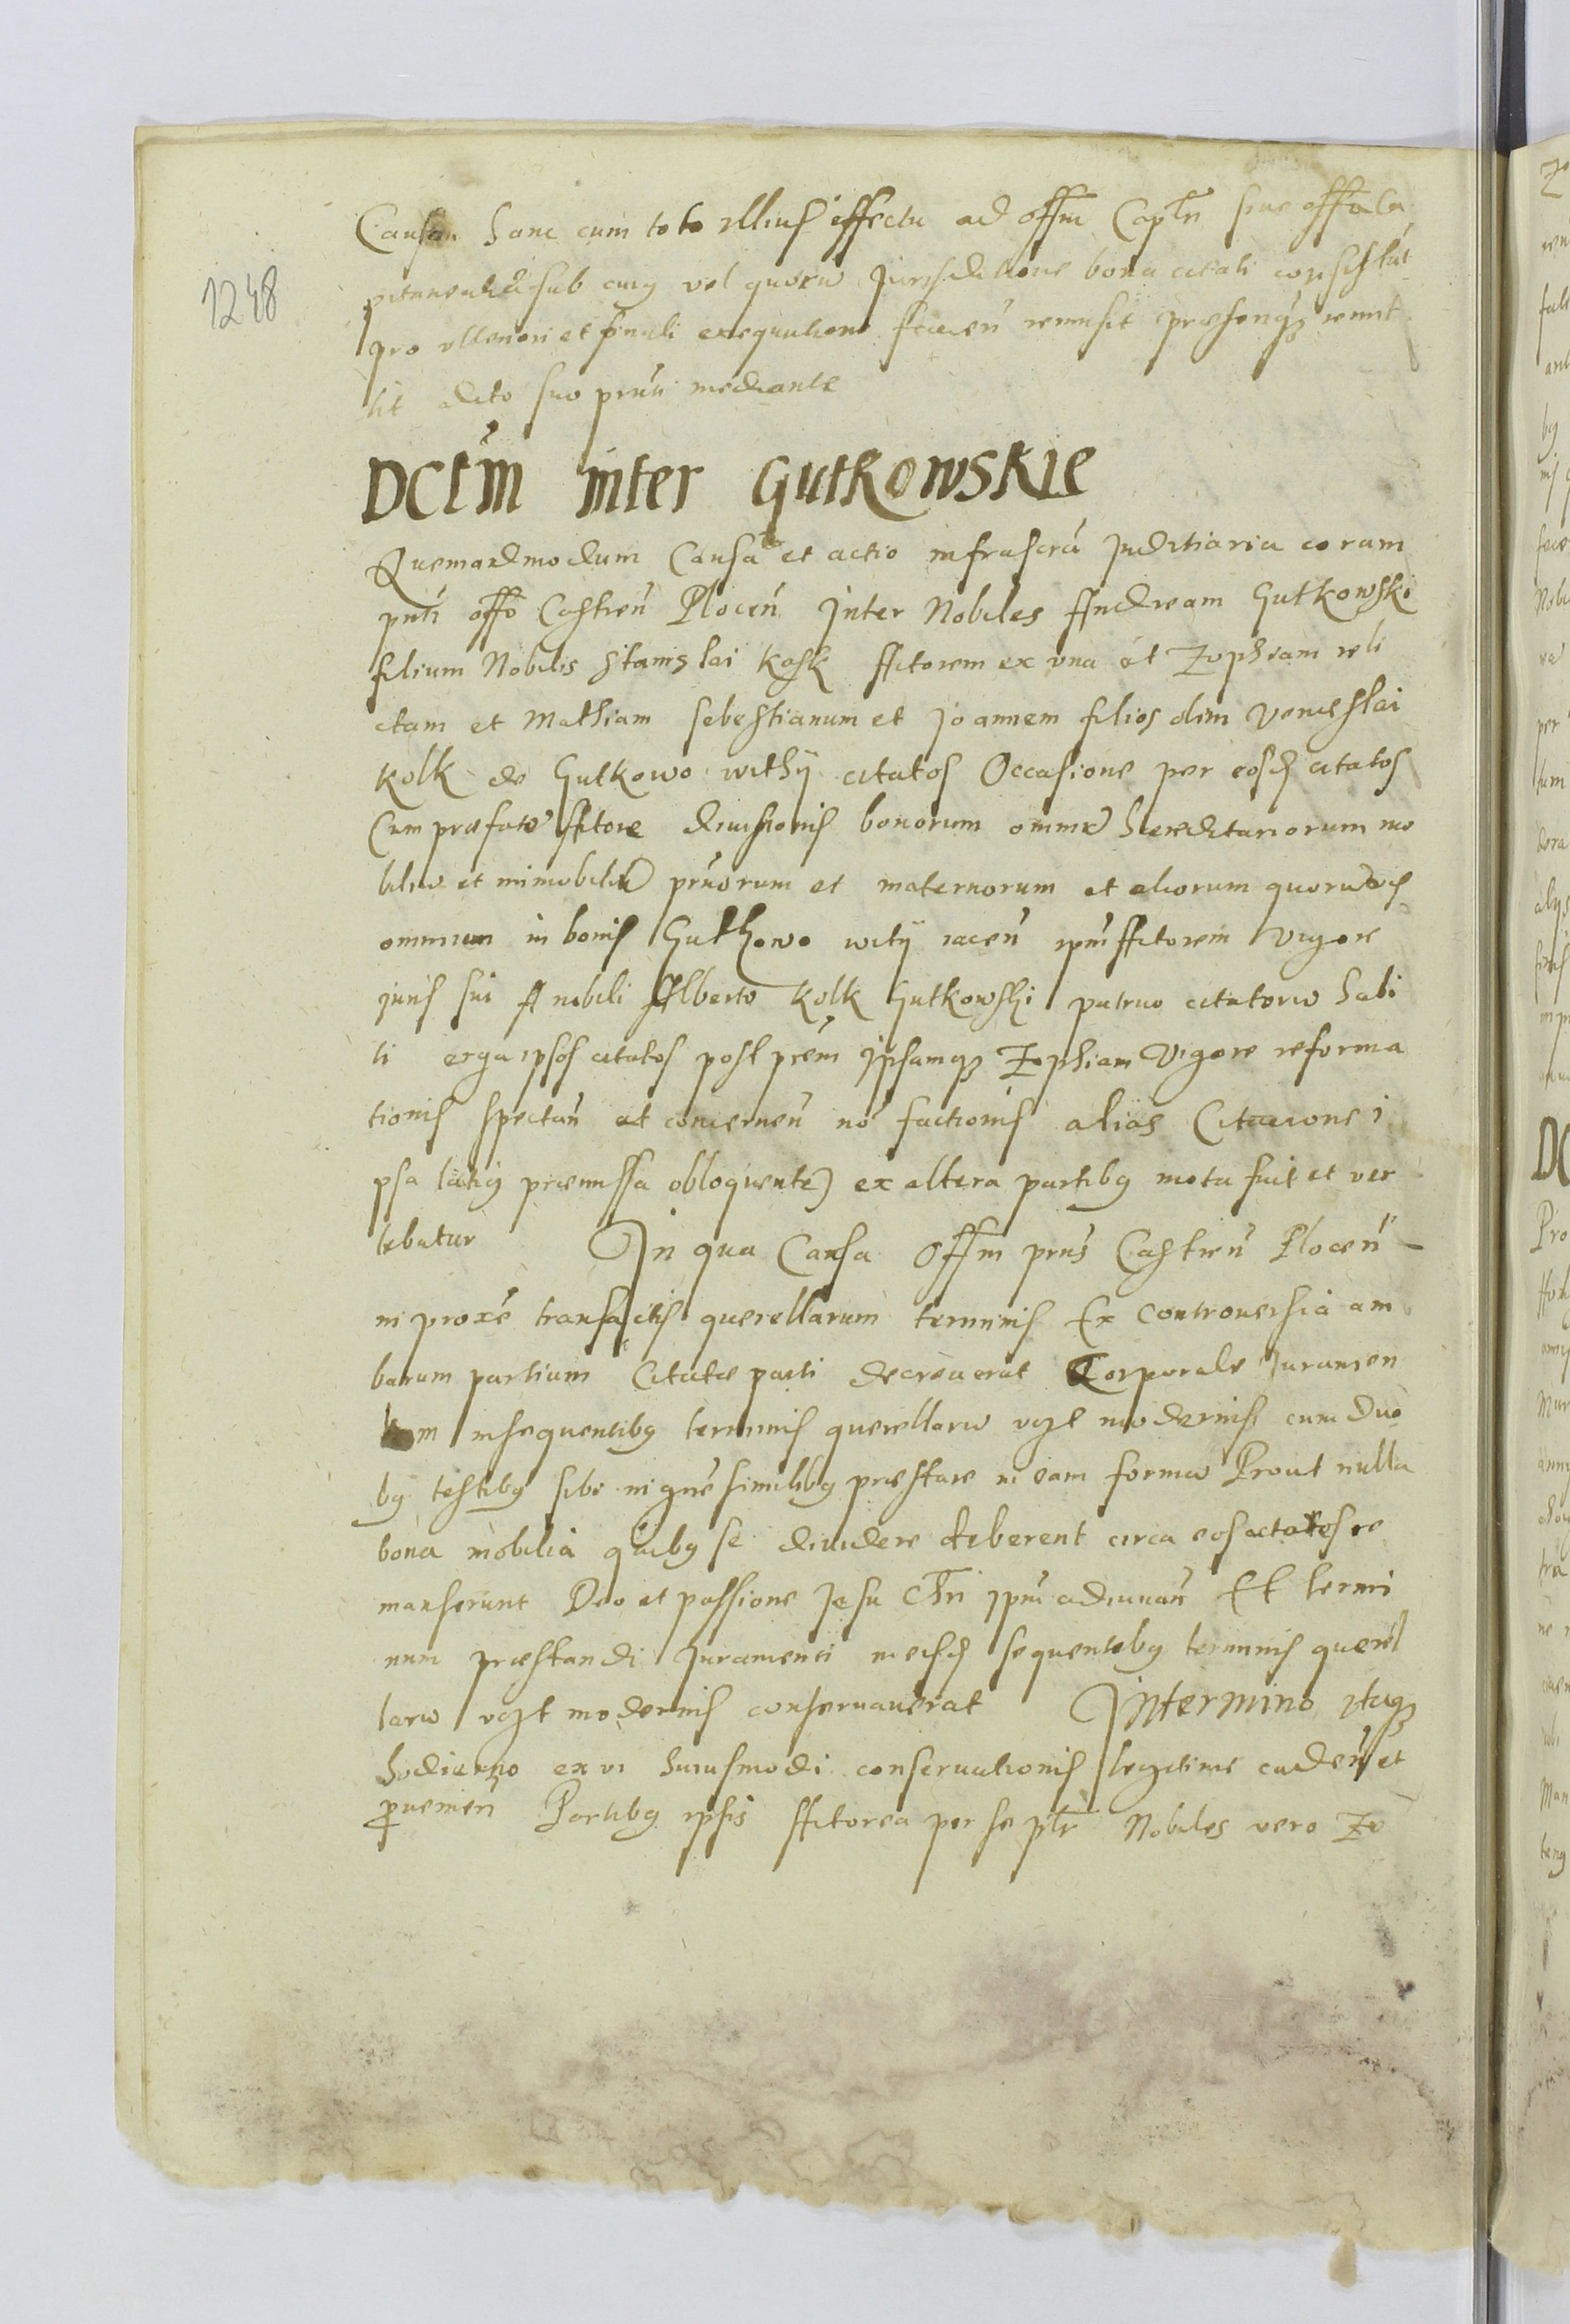 Causam hanc cum toto illius effectu ad offm Capln siue offalā
pitaneale sub cuig vel quorū Jurisdictione bona citati consistūt
1248
pro vlteriori et finali exequutione faciēn remisit præsentiq3 remit
tit dcto suo pnti mediante
DCtm inter Gutkowskie
Quemandmodum Causa et actio infrascra Juditiaria coram
pnti offo Castren Plocen Inter Nobiles Andream Gutkowski
filium Nobilis Stanislai Kosk Actorem ex vna et Zophiam reli
ctam et Mathiam Sebestianum et Joannem filios olim Venceslai
Kolk de Gutkowo withÿ citatos Occasione per eosd citatos
Cum præfato Actore diuisionis bonorum omniū hereditariorum mo
biliū et immobiliū prnorum et maternorum et aliorum quorūvis
omnium in bonis Gutkowo witÿ iacēn ipm Actorem vigore
juris sui A nobili Alberto Kolk Gutkowski patruo citatorū habi
ti erga ipsos citatos post prem Ipsamq3 Zophiam Vigore reforma
tionis spectan et concernen no factionis alias Citacione i
psa latig præmissa obloquente) ex altera partibg mota fuit et ver
tebatur In qua Causa Offm pns Castren Plocen
in proxe transactis querellarum terminis Ex controuersia am
barum partium Citatæ parti decreuerat Corporale Juramen
tum insequentibg terminis querellarū vczt modernis cum Duo
bg testibg sibi in gne similibg præstare in eam formā Prout nulla
bona mobilia quibg se diuidere deberent circa eos citatos re
manserunt Deo et passione Jesu Chri ipm adiuuan Et termi
num præstandi Juramenti in eisd sequentibg terminis querel
larū vczt modernis conseruauerat In termino itaq3
hodierno ex vi huiusmodi conseruationis legitime caden et
prouenien Partibg ipsis Actorea per se plr Nobiles vero Zo